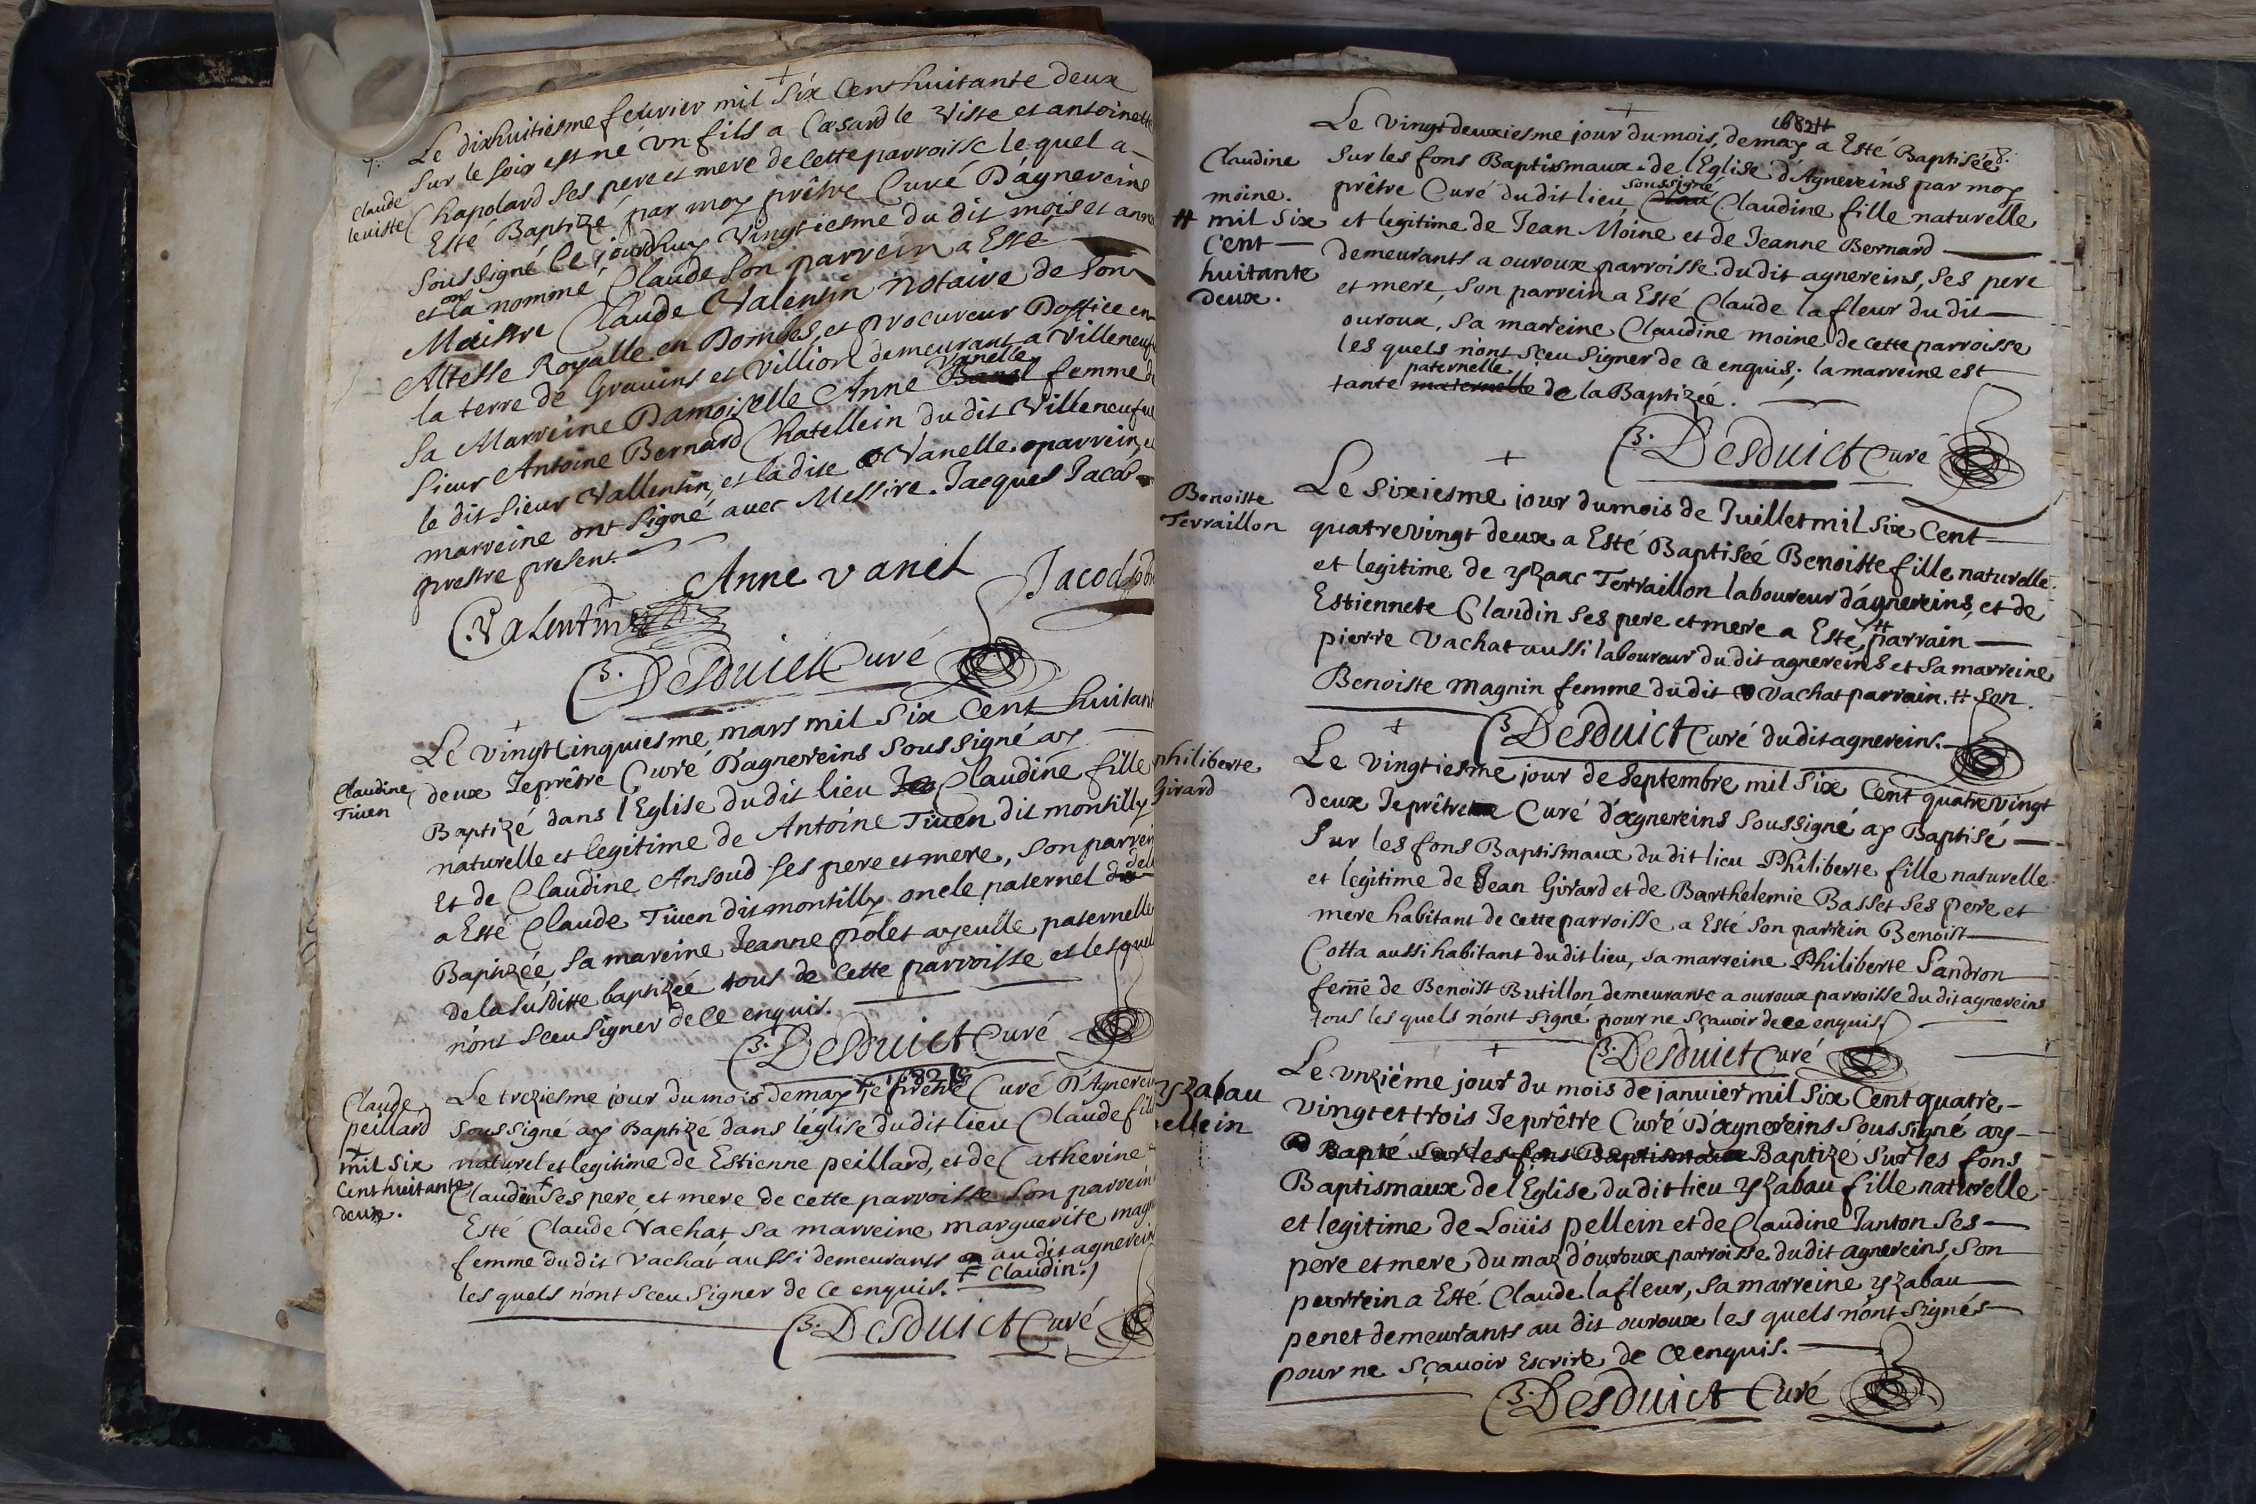 Le dixhuitiesme feurier mil six Cent huitante deux
sur le soir est né vn fils a Cæsard le Viste et antoinette
Claude
leviste
Chapolard ses pere et mere de Cette parroisse lequel a
Esté Baptizé par moy prêtre Curé D'agnereins
soussigné Ce jourdhuy vingtiesme du dit mois et anné
et la nommé Claude son parrein a Esté
Maistre Claude Valentin notaire de son
Altesse Royalle en Dombes, et procureur Doffice en
la terre de Grauins et Villion demeurant a Villeneufue
Sa Marreine Damoiselle Anne Vanelle femme du
Sieur Antoine Bernard Chatellein du dit Villeneufue
le dit sieur Vallentin, et la dite Vanelle parrein, et
marreine ont signé auec Messire Jacques Jacob
prestre present.
Anne vanel
Jacod
C. Valentin
B. Desduict Curé
Le vingt Cinquiesme mars mil six Cent huitant
Claudine
Tiuen
deux Je prêtre Curé Dagnereins soussigné ay
Baptizé dans l'Eglise du dit lieu Claudine fille
naturelle et legitime de Antoine Tiuen dit montilly
Et de Claudine Ansoud ses pere et mere, son parrein
a Esté Claude Tiuen dit montilly oncle paternel de la
Baptizée, sa mareine Jeanne polet ayeulle paternelle
de la susditte baptizée tous de Cette parroisse et lesquel
n'ont sceu signer de Ce enquis.
B. Desduict Curé
1682
Claude
peillard
mil six
Cent huitante
deux.
Le treziesme jour du mois de may je prêtre Curé D'Agnerein
soussigné ay Baptizé dans l'église du dit lieu Claude fils
naturel et legitime de Estienne peillard, et de Catherine
Claudin ses pere et mere de cette parroisse son parrein
Esté Claude Vachat sa marreine marguerite magn
femme du dit Vachat aussi demeurants au dit agnerein
les quels n'ont sceu signer de Ce enquis. Claudin.
B. Desduict Curé
1682
Le vingt deuxiesme jour du mois de may a Esté Baptisée
Claudine
moine.
mil six
Cent
huitante
deux.
sur les fons Baptismaux de l'Eglise d'Agnereins par moy
prêtre Curé du dit lieu soussigné Claudine fille naturelle
et legitime de Jean Moine et de Jeanne Bernard
demeurants a ouroux parroisse du dit agnereins, ses pere
et mere, son parrein a Esté Claude la fleur du dit
ouroux, sa mareine Claudine moine de cette parroisse
les quels n'ont sçeu signer de Ce enquis; la marreine est
tante maternelle paternelle de la Baptizée.
B. Desduict Curé
Benoiste
Terraillon
Le sixiesme jour du mois de Juillet mil six Cent
quatre vingt deux a Esté Baptiseé Benoitte fille naturelle
et legitime de yzaac Terraillon laboureur d'agnereins, et de
Estiennete Claudin ses pere et mere a Esté # parrain
pierre Vachat aussi laboureur du dit agnereins et sa marreine
Benoiste magnin femme du dit Vachat parrain. # son.
B. Desduict Curé du dit agnereins.
philiberte
Girard
Le vingtiesme jour de Septembre mil six Cent quatre vingt
deux Je prêtre Curé d'agnereins soussigné ay Baptisé
sur les fons Baptismaux du dit lieu Philiberte fille naturelle
et legitime de Jean Girard et de Barthelemie Basset ses pere et
mere habitant de cette parroisse a Esté son parrein Benoist
Cotta aussi habitant du dit lieu, sa marreine Philiberte Sandron
feme de Benoist Butillon demeurante a ouroux parroisse du dit agnereins
tous les quels n'ont signé pour ne sçauoir de ce enquis.
B. Desduict Curé
yzabau
ellein
Le vnziéme jour du mois de janvier mil six Cent quatre
vingt et trois Je prêtre Curé D'agnereins soussigné ay
Bapté sur les fons Baptismaux Baptizé sur les fons
Baptismaux de l'Eglise du dit lieu yzabau fille naturelle
et legitime de Loüis pellein et de Claudine Janton ses
pere et mere, du maz d'ouroux parroisse du dit agnereins, son
parrein a Esté Claude lafleur, sa marreine yzabau
penet demeurants au dit ouroux les quels n'ont signés
pour ne sçauoir Escrire de Ce enquis.
B. Desduict Curé